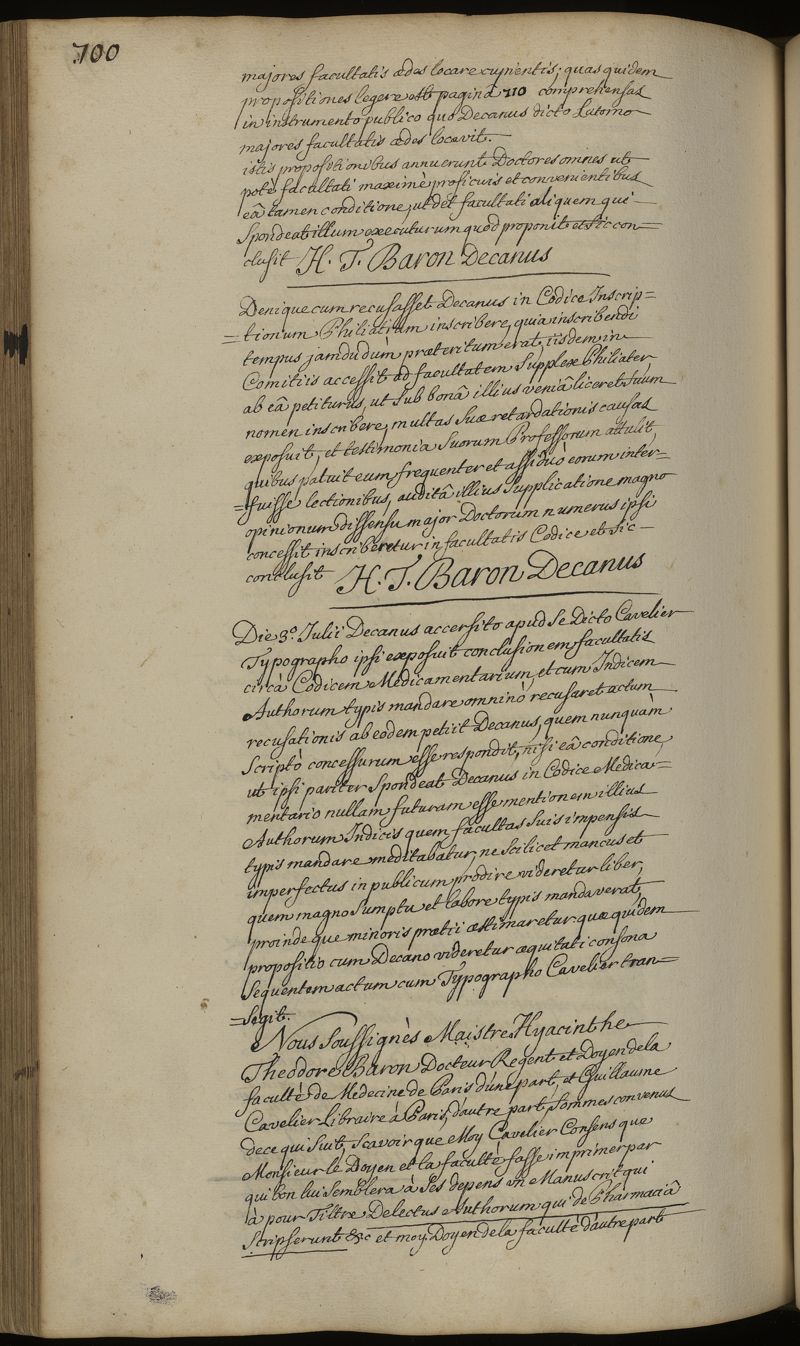 700
majores facultatis ædes locare cupientis; quas quidem
propositiones legere est pagina 710 comprehensas
in instrumento publico quo Decanus dicto Latomo
majores facultatis ædes locavit.
istis propositionibus annuerunt Doctores omnes ut
potè facultati maximè proficuis et convenientibus
eâ tamen conditione, ut det facultati aliquem qui
Spondeat illum executurum quod proponit et sic con=
clusit H. T. Baron Decanus
Denique cum recusasset Decanus in Codice Inscrip=
=tionum Philiatrum inscribere, quia inscribendi
tempus jamdudum præteritum erat, iisdem in
Comitiis accessit ad facultatem Supplex Philiater
ab eâ petiturus, ut sub bonâ illius veniâ liceret suum
nomen inscribere, multas suæ retardationis causas
exposuit, et testimonia suorum Professorum attulit
quibus patuit eum frequenter et assiduò eorum inter=
=fuisse lectionibus, auditâ illius Supplicatione magno
opinionum dissensu major Doctorum numerus ipsi
concessit inscriberetur in facultatis Codice et sic
conclusit H. T. Baron Decanus
Die 3º. Julii Decanus accersito apud se dicto Cavelier
Typographo ipsi exposuit conclusionem facultatis
circà Codicem Medicamentarium, et cum Indicem
Authorum typis mandare omninò recusaret actum
recusationis ab eodem petiit Decanus, quem nunquàm
Scriptò concessurum esse respondit, nisi eâ conditione,
ut ipsi pariter Spondeat Decanus in Codice Medica=
mentario nullam futuram esse mentionem illius
Authorum Indicis quem facultas suis impensis
typis mandare meditabatur, ne scilicet mancus et
imperfectus in publicum prodire videretur liber,
quem magno Sumptu et labore typis mandaverat,
proindeque minoris prætii æstimaretur quæ quidem
propositio cum Decano videretur æquitati consona
Sequentem actum cum Typographo Cavelier tran=
=segit.
Nous soussignès Maistre Hyacinthe
Theodore Baron Docteur Regent et Doyen de la
faculté de Médecine de Paris d'une part, et Guillaume
Cavelier Libraire à Paris, d'autre part, Sommes convenus
de ce qui Suit, Scavoir que Moy Cavelier Consens que
Monsieur le Doyen et la faculté fasse imprimer par
qui bon lui Semblera à Ses depens un Manuscrit qui
à pour Tiltre Delectus Authorum qui de Pharmaciâ
Scripserunt &c et moy Doyen de la faculté d'autre part